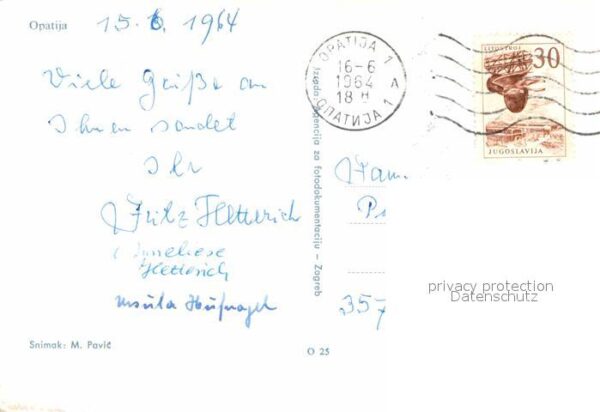 Opatija
15.6 1964
Viele Grüße an
Ihnen sendet
Ihr
Fritz Hetterich
Anneliese
Hetterich
Ursula Hufnagel
Snimak: M. Pavić
Izdada: Agencija za fotodokumentaciju – Zagreb
O 25
OPATIJA 1
16-6
1964
18 H
A
ОПАТИЈА 1
30
JUGOSLAVIJA
357
privacy protection
Datenschutz